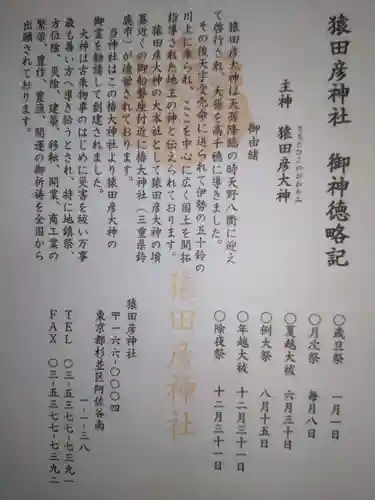 猿田彦神社　御神徳略記
主神　猿田彦大神
さるたひこのおおかみ
御由緒
猿田彦大神は天孫降臨の時天野八衢に迎え
て啓行され、大孫を高千穂に導きました。
その後天宇受売命に送られて伊勢の五十鈴の
川上に来られ、ここを中心に広く国土を開拓
指導された地主の神と伝えられております。
猿田彦大神の大本社として猿田彦大神の墳
墓近くの御船磐座付近に椿大神社（三重県鈴
鹿市）が造営されております。
当神社はこの椿大神社より猿田彦大神の
御霊を勧請して創建されました。
大神は古来物事のはじめに災害を祓い万事
最も善い方へ導き給うとされ、特に地鎮祭、
方位除、災除、建築、移転、開業、商工業の
繁栄、豊作、豊漁、開運の御祈祷を全国から
出願されております。
〇歳旦祭　一月一日
〇月次祭　毎月八日
〇夏越大祓　六月三十日
〇例大祭　八月十五日
〇年越大祓　十二月三十一日
〇除夜祭　十二月三十一日
猿田彦神社
猿田彦神社
〒一六六-〇〇〇四
東京都杉並区阿佐谷南
一-一-三八
ＴＥＬ　〇三-五三七七-七三九一
ＦＡＸ　〇三-五三七七-七三九二